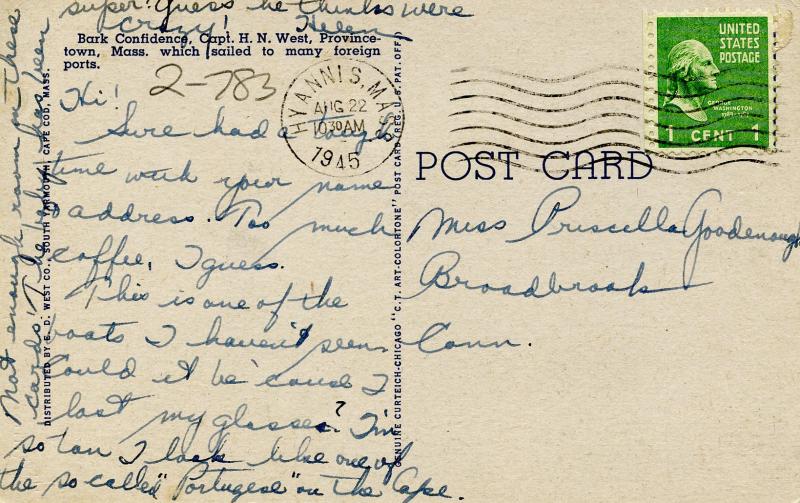 Bark Confidence, Capt. H. N. West, Province-
town, Mass. which sailed to many foreign
ports.
2-783
Hi!
Sure had a
time with your name
& address. Too much
coffee, I guess.
This is one of the
boats I haven't seen.
Could it be 'cause I
lost my glasses? I'm
so tan I look like one of
the so called "Portugese" on the Cape.
Not enough room on these
cards! The baby has been
super. Guess he thinks were
crazy! Helen
DISTRIBUTED BY E. D. WEST CO., SOUTH YARMOUTH, CAPE COD, MASS.
GENUINE CURTEICH-CHICAGO "C.T. ART-COLORTONE" POST CARD (REG. U.S. PAT. OFF.)
HYANNIS, MASS
AUG 22
10 30 AM
1945
UNITED
STATES
POSTAGE
GEORGE
WASHINGTON
1 CENT 1
POST CARD
Miss Priscilla Goodenough
Broadbrook
Conn.